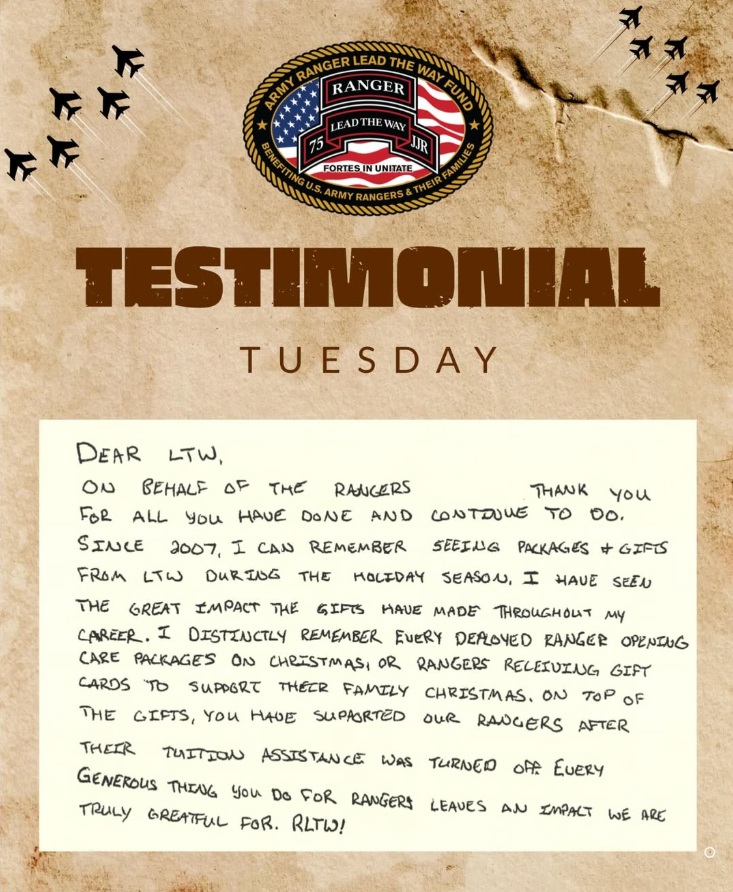 ARMY RANGER LEAD THE WAY FUND
RANGER
LEAD THE WAY
75 JJR
FORTES IN UNITATE
BENEFITING U.S. ARMY RANGERS & THEIR FAMILIES
TESTIMONIAL
TUESDAY
DEAR LTW,
ON BEHALF OF THE RANGERS THANK YOU
FOR ALL YOU HAVE DONE AND CONTINUE TO DO.
SINCE 2007, I CAN REMEMBER SEEING PACKAGES + GIFTS
FROM LTW DURING THE HOLIDAY SEASON. I HAVE SEEN
THE GREAT IMPACT THE GIFTS HAVE MADE THROUGHOUT MY
CAREER. I DISTINCTLY REMEMBER EVERY DEPLOYED RANGER OPENING
CARE PACKAGES ON CHRISTMAS, OR RANGERS RECEIVING GIFT
CARDS TO SUPPORT THEIR FAMILY CHRISTMAS. ON TOP OF
THE GIFTS, YOU HAVE SUPPORTED OUR RANGERS AFTER
THEIR TUITION ASSISTANCE WAS TURNED OFF. EVERY
GENEROUS THING YOU DO FOR RANGERS LEAVES AN IMPACT WE ARE
TRULY GREATFUL FOR. RLTW!